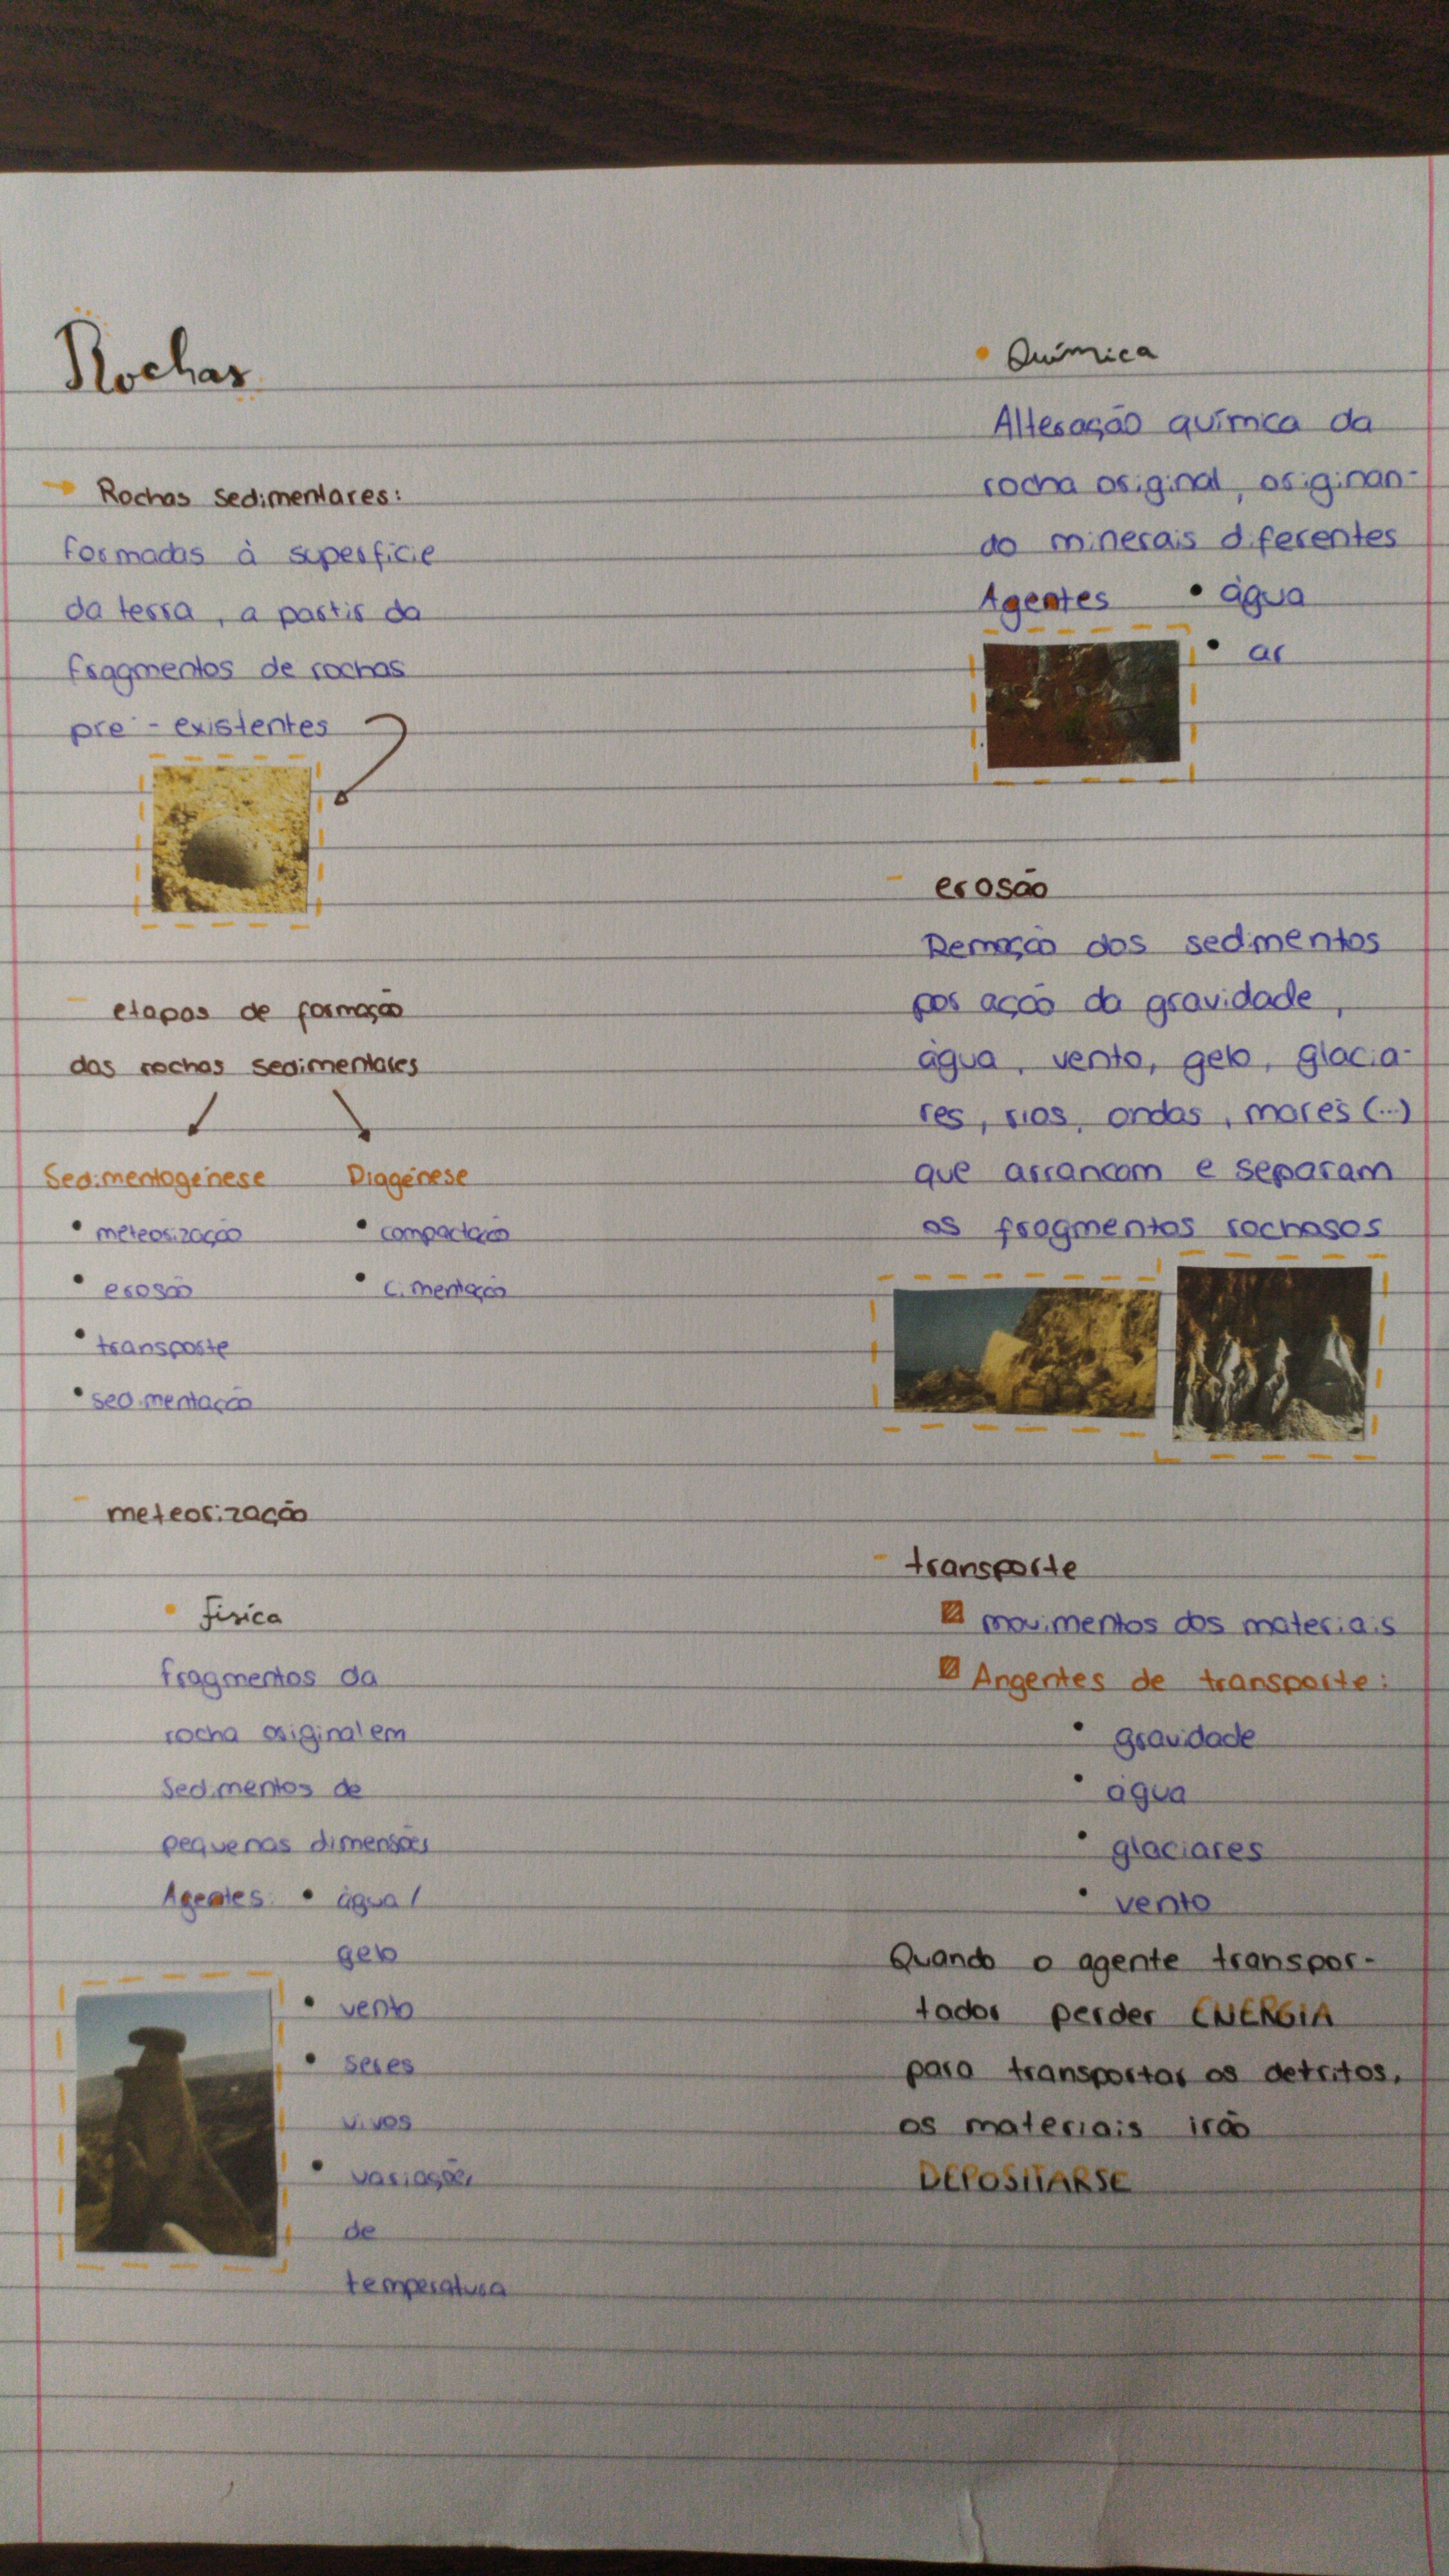 Rochas
Rochas sedimentares:
formadas à superfície
da terra, a partir da
fragmentos de rochas
pre - existentes
etapas de formação
das rochas sedimentares
Sedimentogénese Diagénese
• meteorização • compactação
• erosão • cimentação
• transporte
• sedimentação
meteorização
• física
fragmentos da
rocha original em
sedimentos de
pequenas dimensões
Agentes: • água /
gelo
• vento
• seres
vivos
• variações
de
temperatura
• Química
Alteração química da
rocha original, originan-
do minerais diferentes
Agentes • água
• ar
- erosão
Remoção dos sedimentos
por ação da gravidade,
água, vento, gelo, glacia-
res, rios, ondas, marés (...)
que arrancam e separam
os fragmentos rochosos
- transporte
movimentos dos materiais
Angentes de transporte:
• gravidade
• água
• glaciares
• vento
Quando o agente transpor-
tador perder ENERGIA
para transportar os detritos,
os materiais irão
DEPOSITARSE